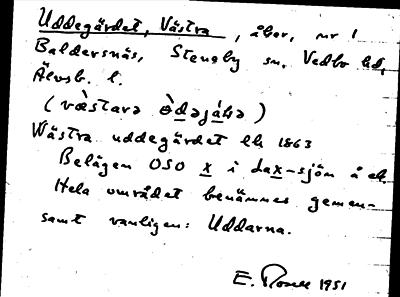 Uddegärdet, Västra, åbor, nr 1
Baldersnäs, Steneby sn, Vedbo hd,
Älvsb. l.
(vœ̀stara ø̀dəjáḷə)
Wästra uddegärdet ek 1863
Belägen OSO x i Lax-sjön å ek.
Hela området benämnes gemen-
samt vanligen: Uddarna.
E. Rosell 1951